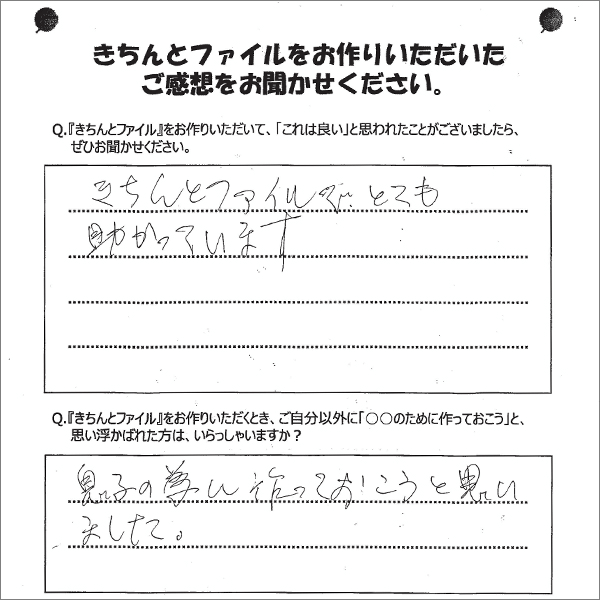 きちんとファイルをお作りいただいた
ご感想をお聞かせください。
Q.『きちんとファイル』をお作りいただいて、「これは良い」と思われたことがございましたら、
ぜひお聞かせください。
きちんとファイルで、とても
助かっています
Q.『きちんとファイル』をお作りいただくとき、ご自分以外に「○○のために作っておこう」と、
思い浮かばれた方は、いらっしゃいますか？
息子の為に作っておこうと思い
ました。